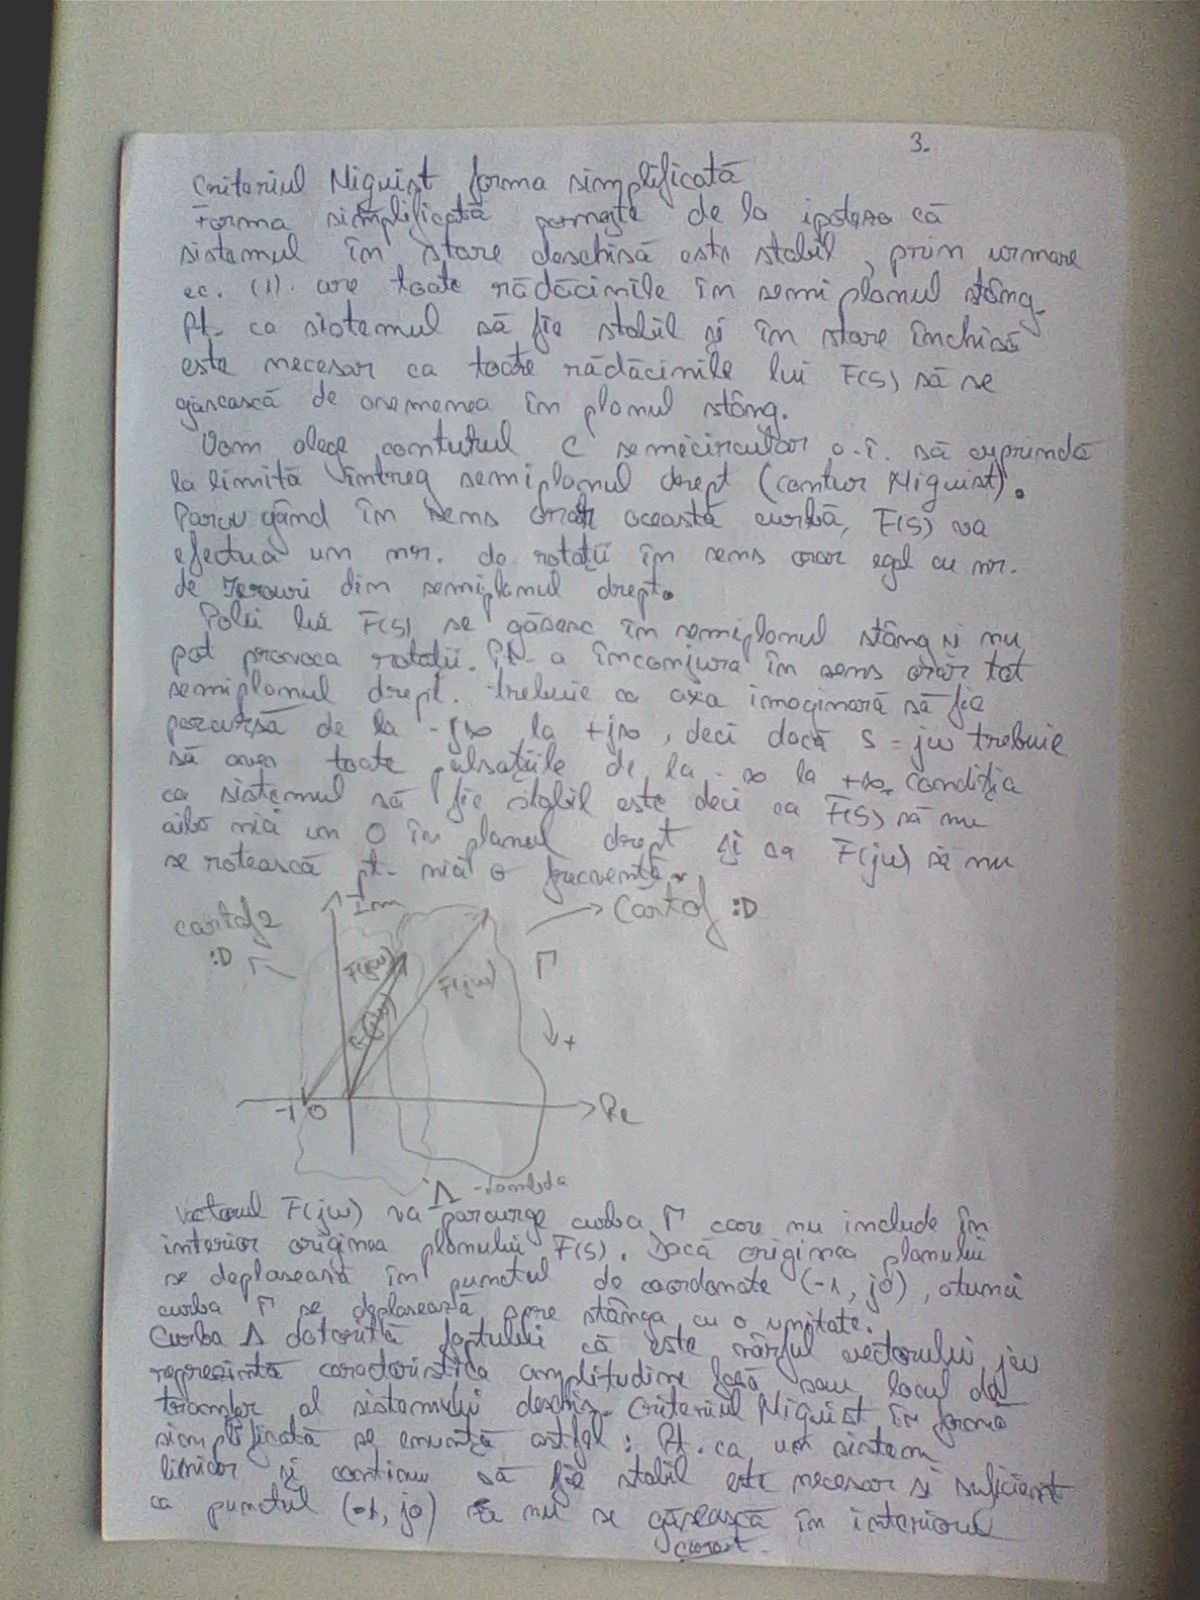 3.
Criteriul Niquist forma simplificată
Forma simplificată pornește de la ipoteza că
sistemul în stare deschisă este stabil, prin urmare
ec. (1). are toate rădăcinile în semiplanul stâng.
Pt. ca sistemul să fie stabil și în stare închisă
este necesar ca toate rădăcinile lui F(s) să se
găsească de asemenea în planul stâng.
Vom alege conturul C semicircular a.î. să cuprindă
la limită întreg semiplanul drept (contur Niquist).
Parcurgând în sens orar această curbă, F(s) va
efectua un nr. de rotații în sens orar egal cu nr.
de zerouri din semiplanul drept.
Polii lui F(s) se găsesc în semiplanul stâng și nu
pot provoca rotații. Pt. a înconjura în sens orar tot
semiplanul drept. trebuie ca axa imaginară să fie
parcursă de la -j∞ la +j∞, deci dacă s = jω trebuie
să avem toate pulsațiile de la -∞ la +∞. Condiția
ca sistemul să fie stabil este deci ca F(s) să nu
aibă nici un 0 în planul drept și ca F(jω) să nu
se rotească pt. nici o frecvență.
Im
cartof 2
:D
Cartof :D
F(jω)
F(jω)
G(jω)
Γ
Γ
+
-1 0
Re
Λ - lambda
Vectorul F(jω) va parcurge curba Γ care nu include în
interior originea planului F(s). Dacă originea planului
se deplasează în punctul de coordonate (-1, j0), atunci
curba Γ se deplasează spre stânga cu o unitate.
Curba Λ datorită faptului că este vârful vectorului jω
reprezintă caracteristica amplitudine fază sau locul de
transfer al sistemului deschis. Criteriul Niquist în formă
simplificată se enunță astfel: Pt. ca un sistem
liniar și continuu să fie stabil este necesar și suficient
ca punctul (-1, j0) să nu se găsească în interiorul